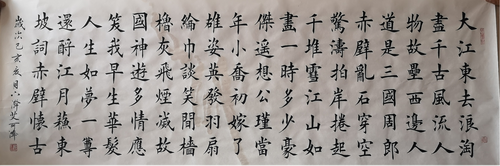 大江東去浪淘
盡千古風流人
物故壘西邊人
道是三國周郎
赤壁亂石穿空
驚濤拍岸捲起
千堆雪江山如
畫一時多少豪
傑遙想公瑾當
年小喬初嫁了
雄姿英發羽扇
綸巾談笑間檣
櫓灰飛煙滅故
國神遊多情應
笑我早生華髮
人生如夢一尊
還酹江月蘇東
坡詞赤壁懷古
歲次己亥